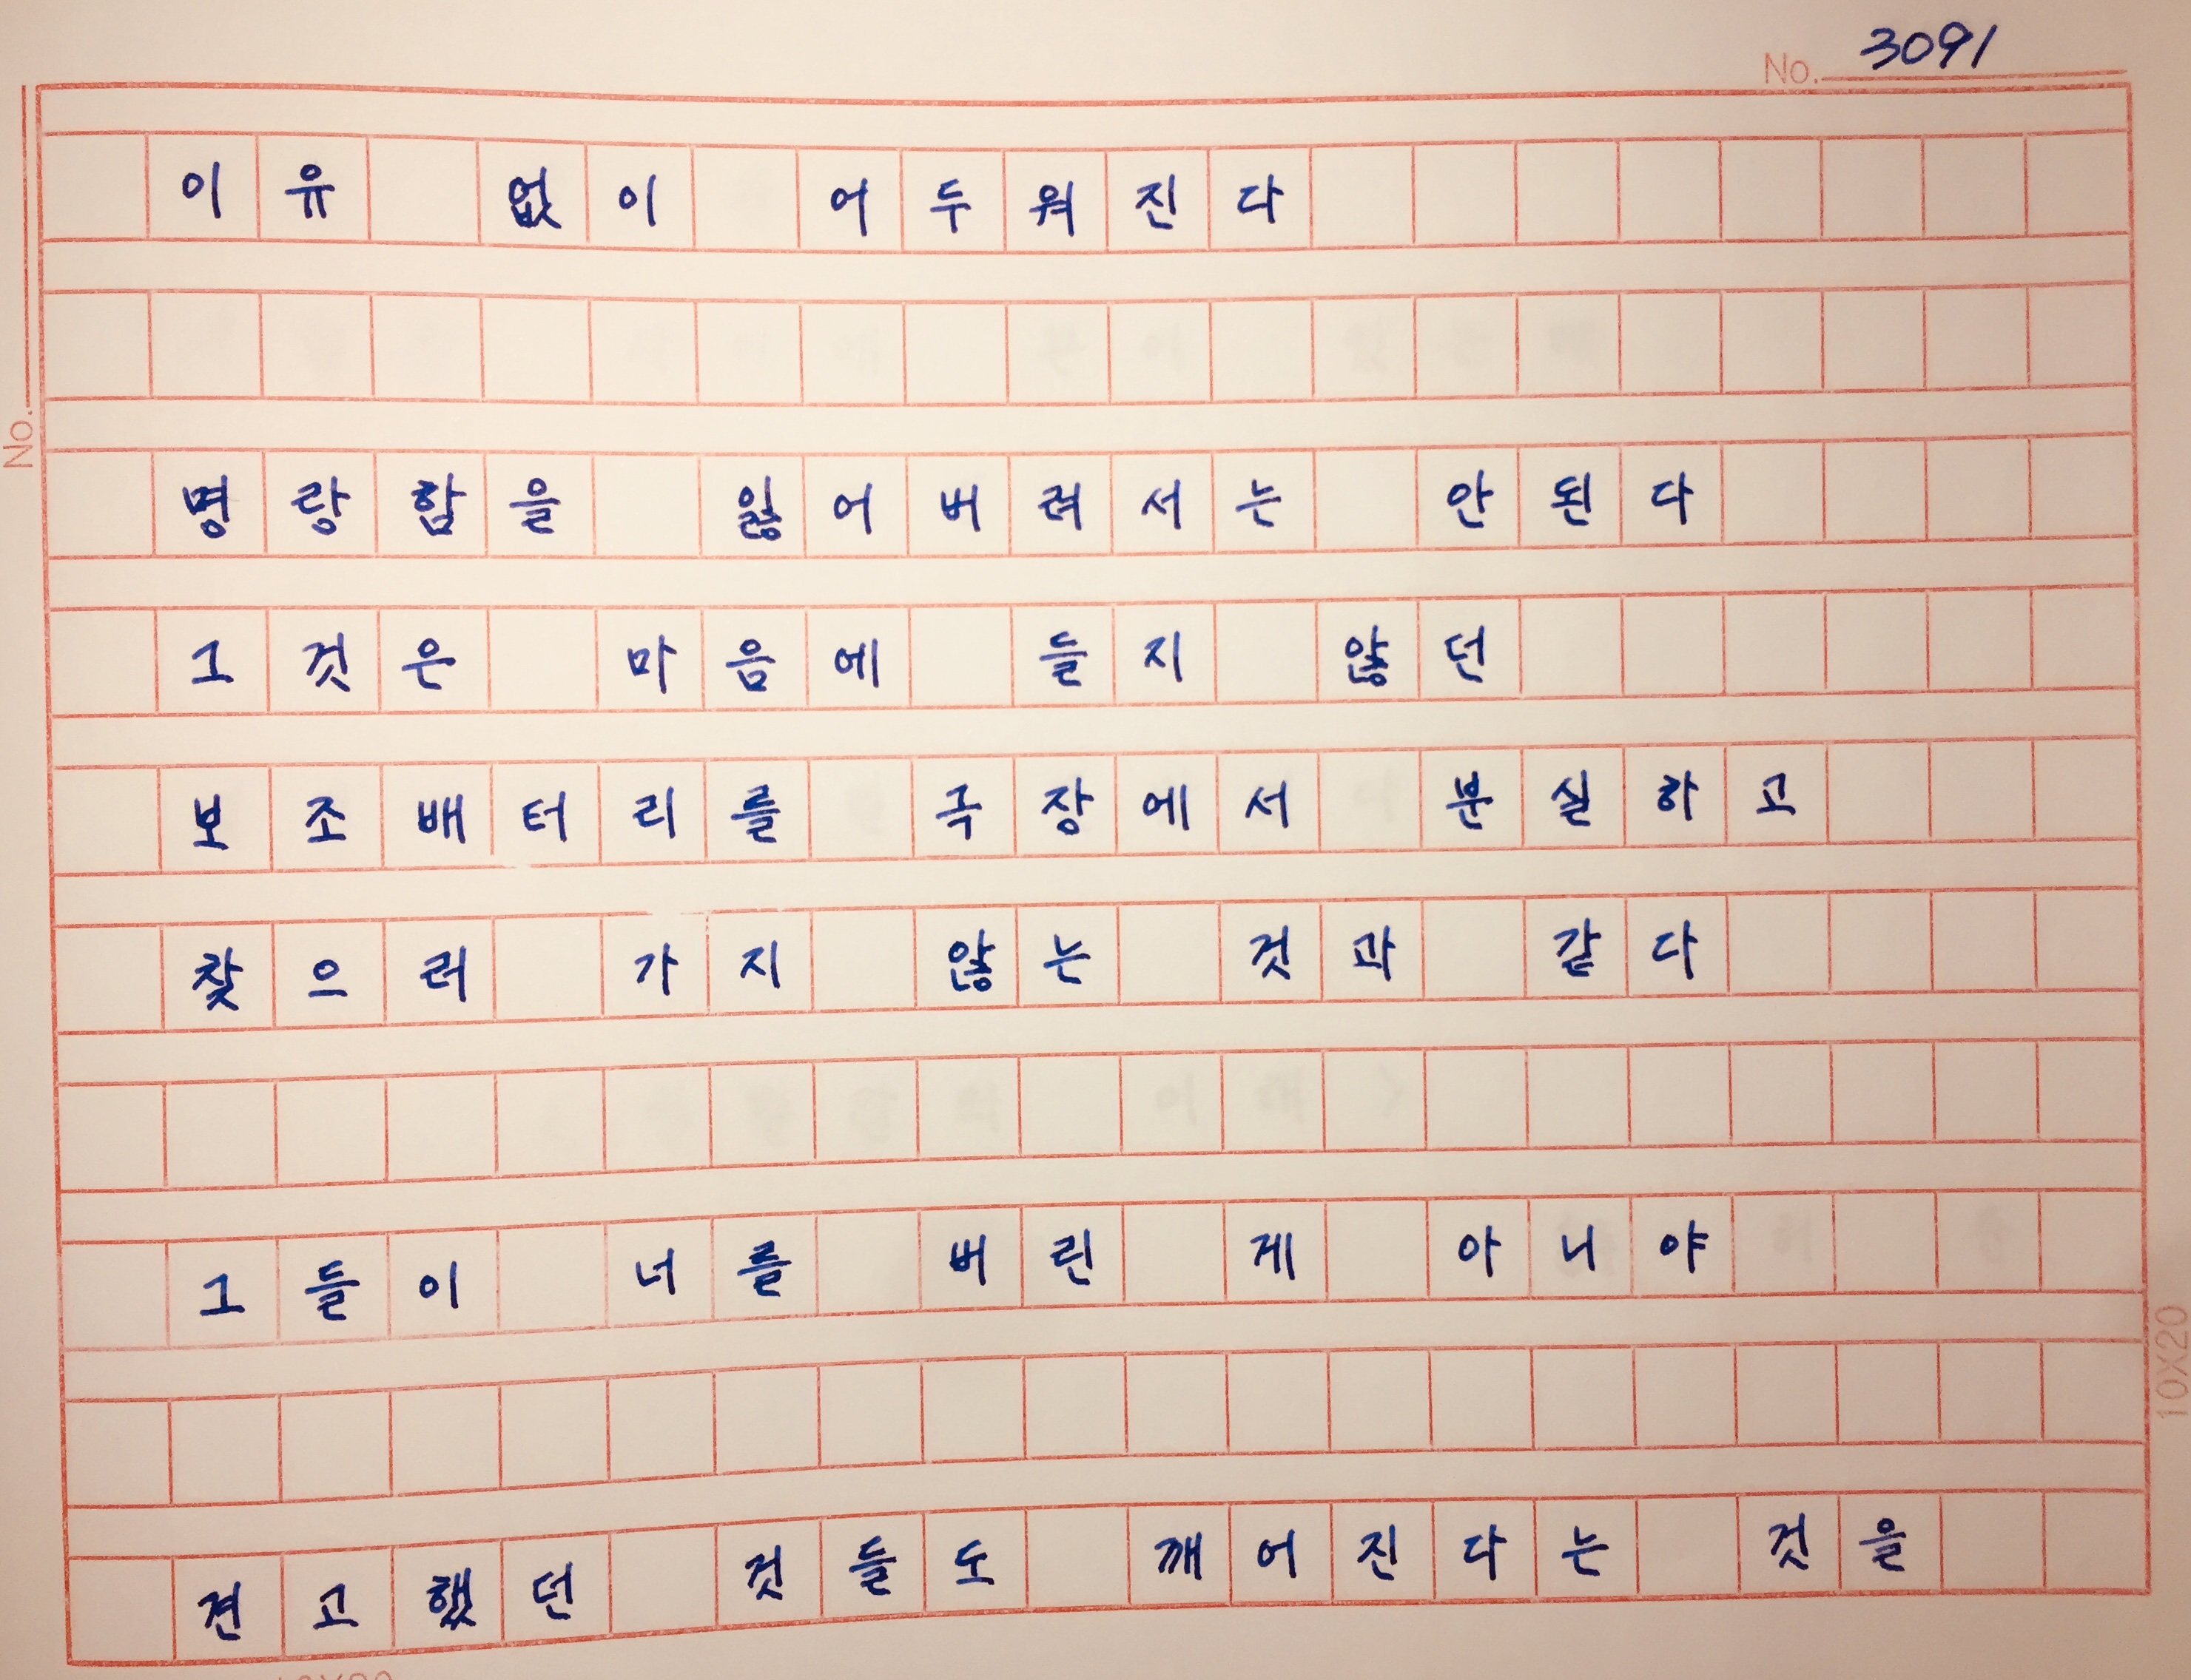 No. 3091
이유 없이 어두워진다
명랑함을 잃어버려서는 안된다
그것은 마음에 들지 않던
보조배터리를 극장에서 분실하고
찾으러 가지 않는 것과 같다
그들이 너를 버린 게 아니야
견고했던 것들도 깨어진다는 것을
No.
10X20